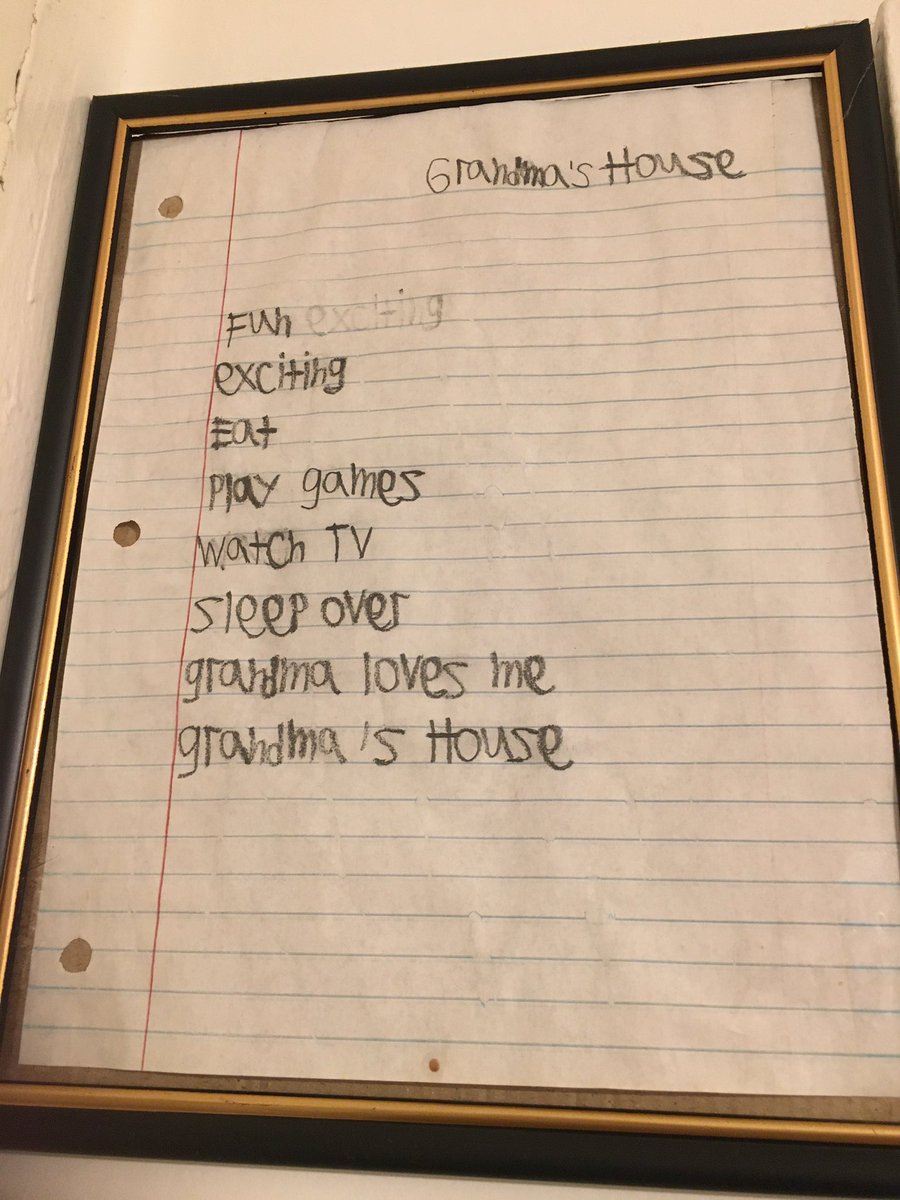 Grandma's House
Fun exciting
exciting
Eat
Play games
watch TV
sleep over
grandma loves me
grandma's House